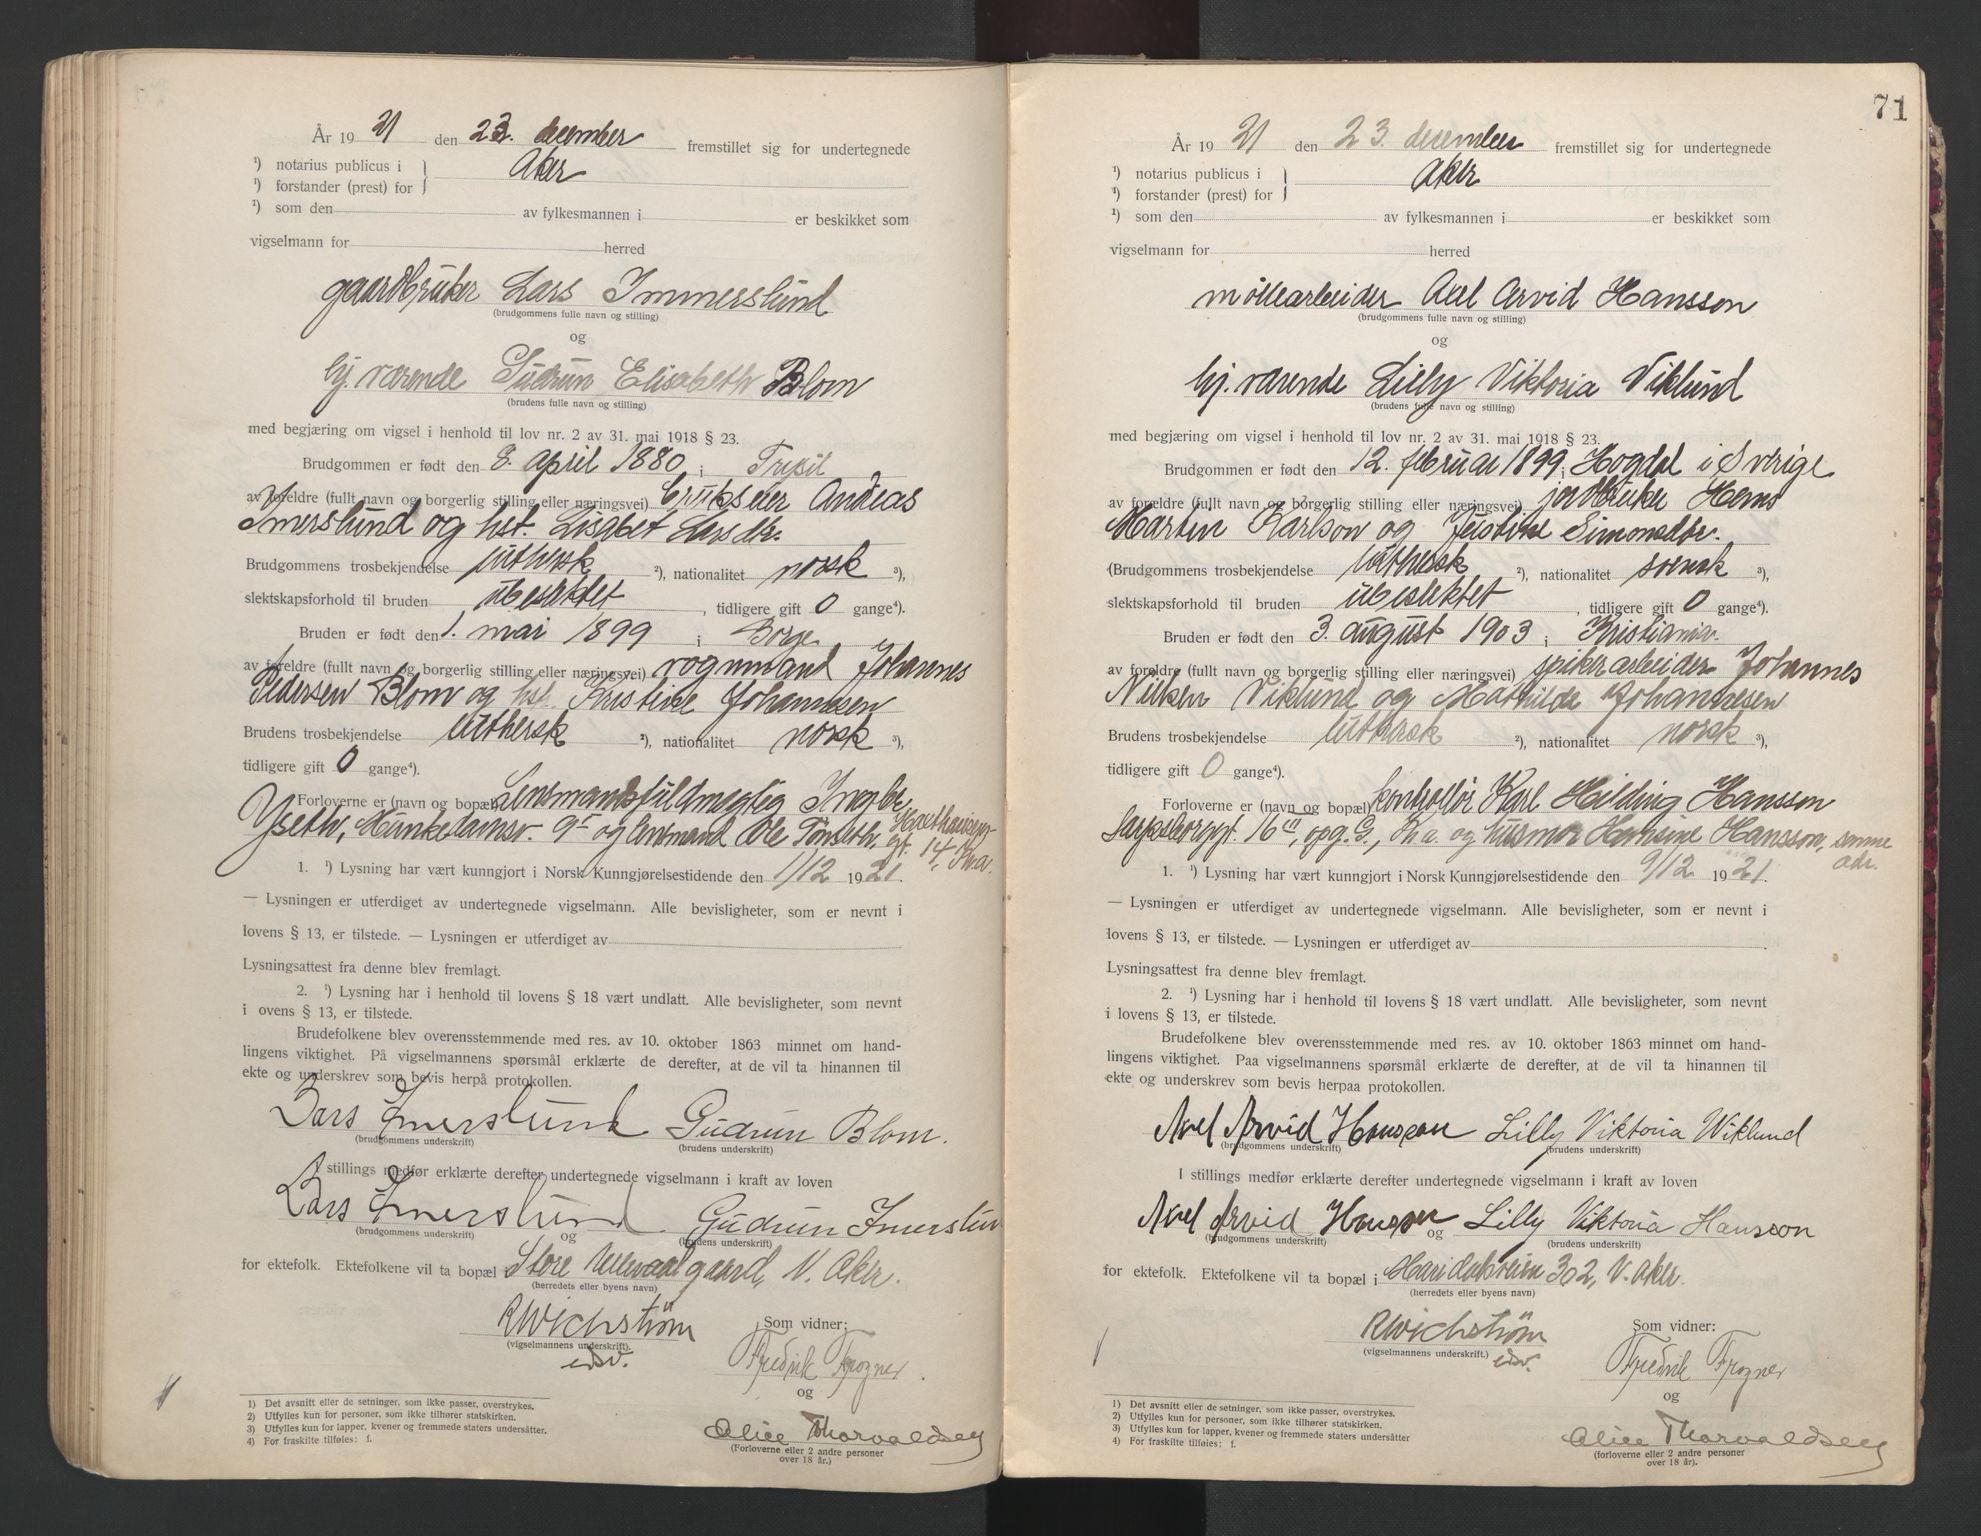 År 1921 den 23. december fremstillet sig for undertegnede
¹) notarius publicus i Aker
¹) forstander (prest) for
¹) som den av fylkesmannen i er beskikket som
vigselmann for herred
gaardbruker Lars Immerslund
(brudgommens fulle navn og stilling)
og
hj. værende Gudrun Elisabeth Blom
(brudens fulle navn og stilling)
med begjæring om vigsel i henhold til lov nr. 2 av 31. mai 1918 § 23.
Brudgommen er født den 8. april 1880, i Trysil
av foreldre (fullt navn og borgerlig stilling eller næringsvei) brukseier Andreas
Imerslund og hst. Lisabet Larsdtr.
Brudgommens trosbekjendelse luthersk ²), nationalitet norsk ³),
slektskapsforhold til bruden ubeslektet, tidligere gift 0 gange⁴).
Bruden er født den 1. mai 1899 i Borge
av foreldre (fullt navn og borgerlig stilling eller næringsvei) vognmand Johannes
Pedersen Blom og hst. Kristine Johannesen
Brudens trosbekjendelse luthersk ²), nationalitet norsk ³),
tidligere gift 0 gange⁴).
Forloverne er (navn og bopæl) Lensmandsfuldmægtig
Yseth, Munkedamsv. 9 og lensmand Ole Tønseth, gt. 14, Kr.a.
1. ¹) Lysning har vært kunngjort i Norsk Kunngjørelsestidende den 1/12 1921.
— Lysningen er utferdiget av undertegnede vigselmann. Alle bevisligheter, som er nevnt i
lovens § 13, er tilstede. — Lysningen er utferdiget av
Lysningsattest fra denne blev fremlagt.
2. ¹) Lysning har i henhold til lovens § 18 vært undlatt. Alle bevisligheter, som nevnt
i ovens § 13, er tilstede.
Brudefolkene blev overensstemmende med res. av 10. oktober 1863 minnet om hand-
lingens viktighet. På vigselmannens spørsmål erklærte de derefter, at de vil ta hinannen til
ekte og underskrev som bevis herpå protokollen.
Lars Imerslund Gudrun Blom.
(brudgommens underskrift) (brudens underskrift)
I stillings medfør erklærte derefter undertegnede vigselmann i kraft av loven
Lars Imerslund Gudrun Imerslun
(brudgommens underskrift) og (brudens underskrift)
for ektefolk. Ektefolkene vil ta bopæl i Store Ullevaal gaard, V. Aker.
(herredets eller byens navn)
RWichstrøm Som vidner:
(vigselmannens underskrift).
edsv. Fredrik Frogner
og
Alice Thorvaldsen
(Forloverne eller 2 andre personer
over 18 år.)
1) Det avsnitt eller de setninger, som ikke passer, overstrykes.
2) Utfylles kun for personer, som ikke tilhører statskirken.
3) Utfylles kun for lapper, kvener og fremmede staters undersåtter.
4) For fraskilte tilføies: f.
71
År 1921 den 23. december fremstillet sig for undertegnede
¹) notarius publicus i Aker
¹) forstander (prest) for
¹) som den av fylkesmannen i er beskikket som
vigselmann for herred
møllearbeider Axel Arvid Hansson
(brudgommens fulle navn og stilling)
og
hj. værende Lilly Viktoria Viklund
(brudens fulle navn og stilling)
med begjæring om vigsel i henhold til lov nr. 2 av 31. mai 1918 § 23.
Brudgommen er født den 12. februar 1899, i Hogdal i Sverige
av foreldre (fullt navn og borgerlig stilling eller næringsvei) jordbruker Hans
Martin Karlson og Justine Simonsdtr.
(Brudgommens trosbekjendelse luthersk ²), nationalitet svensk ³),
slektskapsforhold til bruden ubeslektet, tidligere gift 0 gange⁴).
Bruden er født den 3. august 1903 i Kristiania
av foreldre (fullt navn og borgerlig stilling eller næringsvei) spikerarbeider Johannes
Viklund og Mathilde Johannesen
Brudens trosbekjendelse luthersk ²), nationalitet norsk ³),
tidligere gift 0 gange⁴).
Forloverne er (navn og bopæl) kontrollør Karl Hilding Hansson
Sarpsborggt. 16 III, opg. G., Kr.a. og husmor Hansine Hansson, samme
adr.
1. ¹) Lysning har vært kunngjort i Norsk Kunngjørelsestidende den 9/12 1921.
— Lysningen er utferdiget av undertegnede vigselmann. Alle bevisligheter, som er nevnt i
lovens § 13, er tilstede. — Lysningen er utferdiget av
Lysningsattest fra denne blev fremlagt.
2. ¹) Lysning har i henhold til lovens § 18 vært undlatt. Alle bevisligheter, som nevnt
i lovens § 13, er tilstede.
Brudefolkene blev overensstemmende med res. av 10. oktober 1863 minnet om hand-
lingens viktighet. Paa vigselmannens spørsmål erklærte de derefter, at de vil ta hinannen til
ekte og underskrev som bevis herpaa protokollen.
Axel Arvid Hansson Lilly Viktoria Wiklund
(brudgommens underskrift) (brudens underskrift)
I stillings medfør erklærte derefter undertegnede vigselmann i kraft av loven
Axel Arvid Hansson Lilly Viktoria Hansson
(brudgommens underskrift) og (brudens underskrift)
for ektefolk. Ektefolkene vil ta bopæl i Maridalsveien 302, V. Aker.
(herredets eller byens navn)
RWichstrøm Som vidner:
(vigselmannens underskrift.) edsv. Fredrik Frogner
og
Alice Thorvaldsen
(forloverne eller 2 andre personer
over 18 år).
1) Det avsnitt eller de setninger, som ikke passer, overstrykes.
2) Utfylles kun for personer, som ikke tilhører statskirken.
3) Utfylles kun for lapper, kvener og fremmede staters undersåtter
4) For fraskilte tilføies: f.